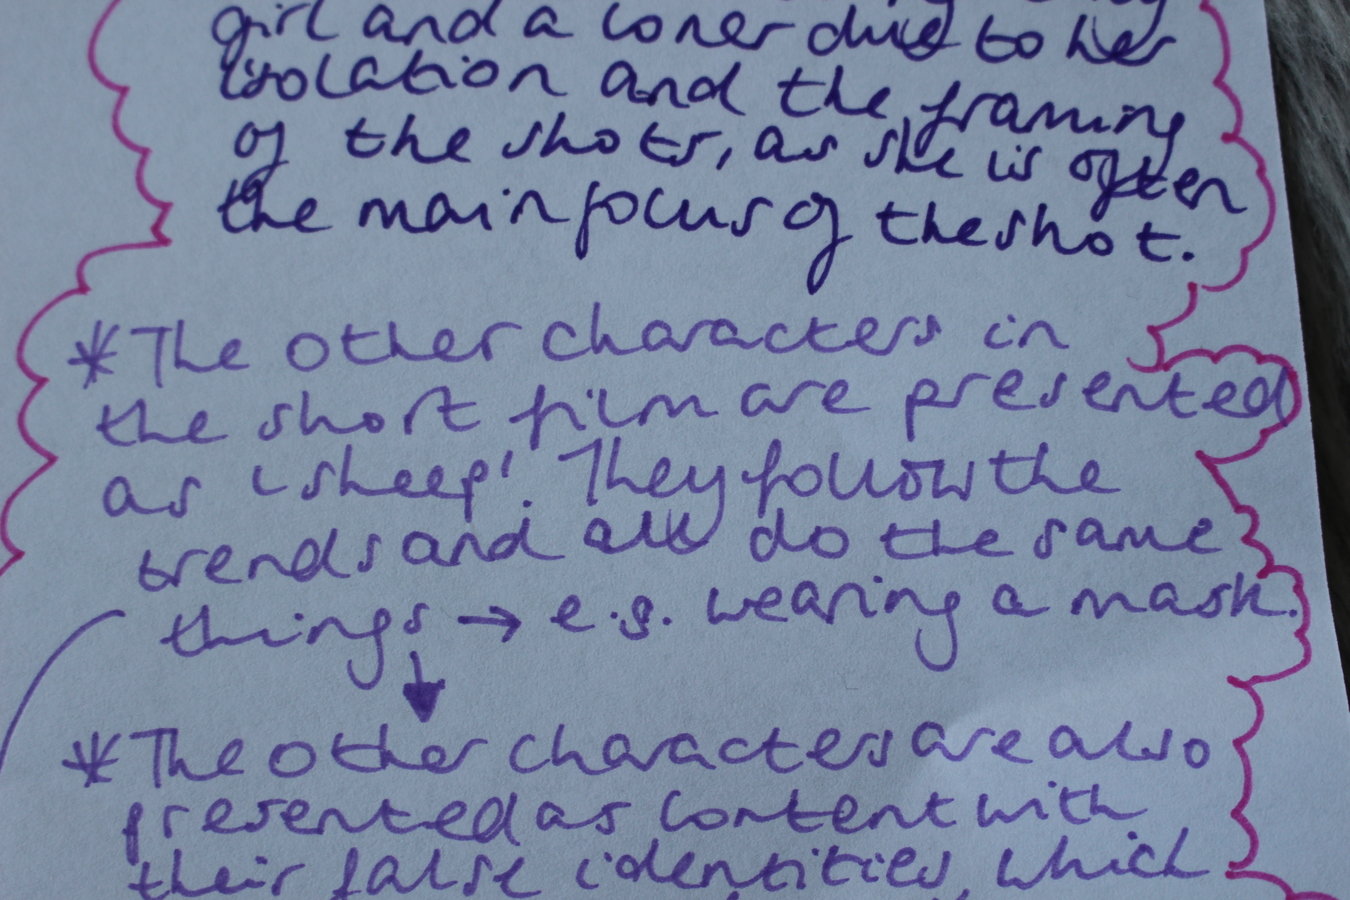 girl and a loner due to her
isolation and the framing
of the shots, as she is often
the main focus of the shot.
* The other characters in
the short film are presented
as 'sheep'. They follow the
trends and all do the same
things → e.g. wearing a mask.
* The other characters are also
presented as content with
their false identities, which